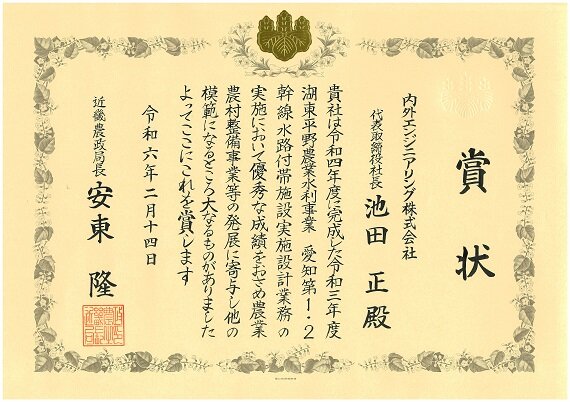 賞状
内外エンジニアリング株式会社
代表取締役社長 池田 正殿
貴社は令和四年度に完成した令和三年度
湖東平野農業水利事業 愛知第1・2
幹線水路付帯施設実施設計業務の
実施において優秀な成績をおさめ農業
農村整備事業等の発展に寄与し他の
模範になるところ大なるものがありました
よってここにこれを賞します
令和六年二月十四日
近畿農政局長 安東 隆